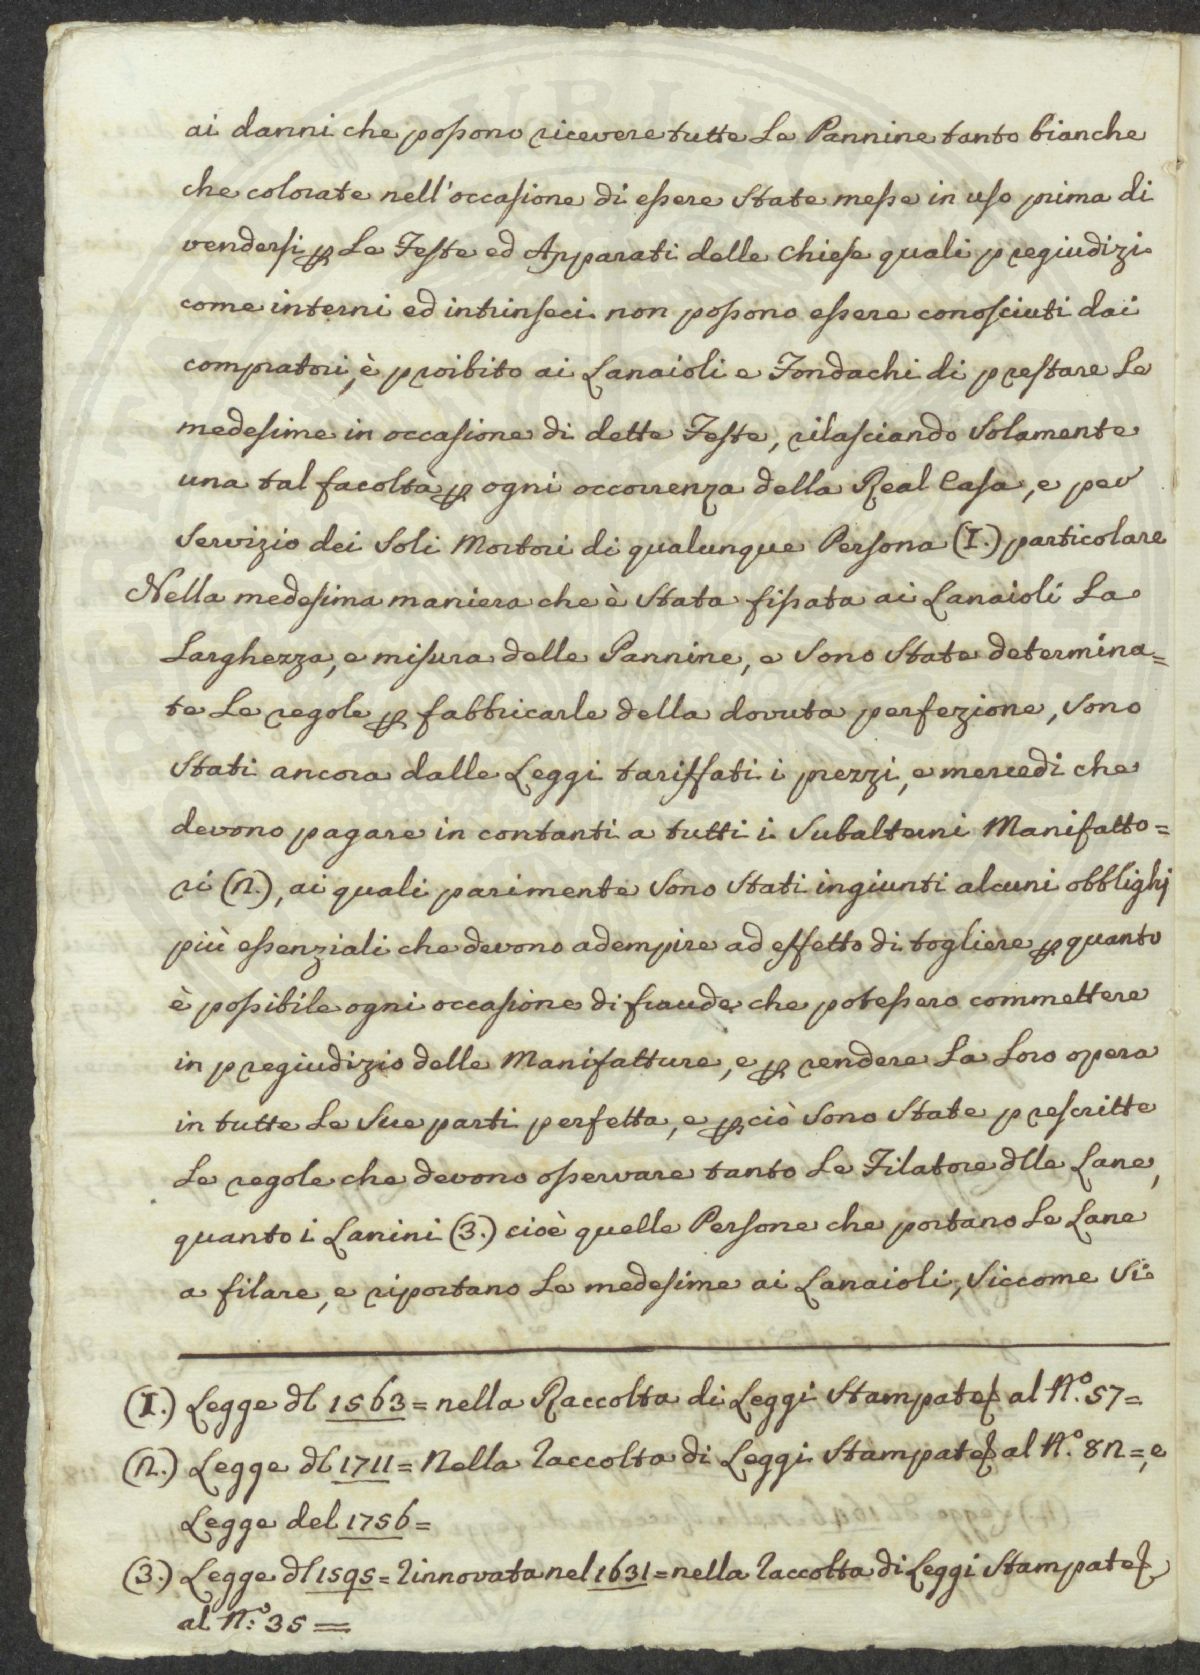 ai danni che possono ricevere tutte Le Pannine tanto bianche
che colorate nell'occasione di essere State messe in uso prima di
vendersi ꝑ Le Feste ed Apparati delle Chiese quali pregiudizi
come interni ed intrinseci non possono essere conosciuti dai
compratori, è proibito ai Lanaioli e Fondachi di prestare Le
medesime in occasione di dette Feste, rilasciando Solamente
una tal facoltà ꝑ ogni occorrenza della Real Casa, e per
Servizio dei Soli Mortori di qualunque Persona (1.) particolare
Nella medesima maniera che è Stata fissata ai Lanaioli La
Larghezza, e misura delle Pannine, e Sono State determina=
te Le regole ꝑ fabbricarle della dovuta perfezione, Sono
Stati ancora dalle Leggi tariffati i prezzi, e mercedi che
devono pagare in contanti a tutti i Subalterni Manifatto=
ri (2.), ai quali parimente Sono Stati ingiunti alcuni obblighj
più essenziali che devono adempire ad effetto di togliere ꝑ quanto
è possibile ogni occasione di fraude che potessero commettere
in pregiudizio delle Manifatture, e ꝑ rendere La Loro opera
in tutte Le Sue parti perfetta, e ꝑciò Sono State prescritte
Le regole che devono osservare tanto Le Filatore dlle Lane,
quanto i Lanini (3.) cioè quelle Persone che portano Le Lane
a filare, e riportano Le medesime ai Lanaioli, Siccome Si
(1.) Legge dl 1563 = nella Raccolta di Leggi Stampate al N.º 57 =
(2.) Legge dl 1711 = Nella Raccolta di Leggi Stampate al N.º 82 =, e
Legge del 1756 =
(3.) Legge dl 1595 = Rinnovata nel 1631 = nella Raccolta di Leggi Stampate
al N.º 35 =